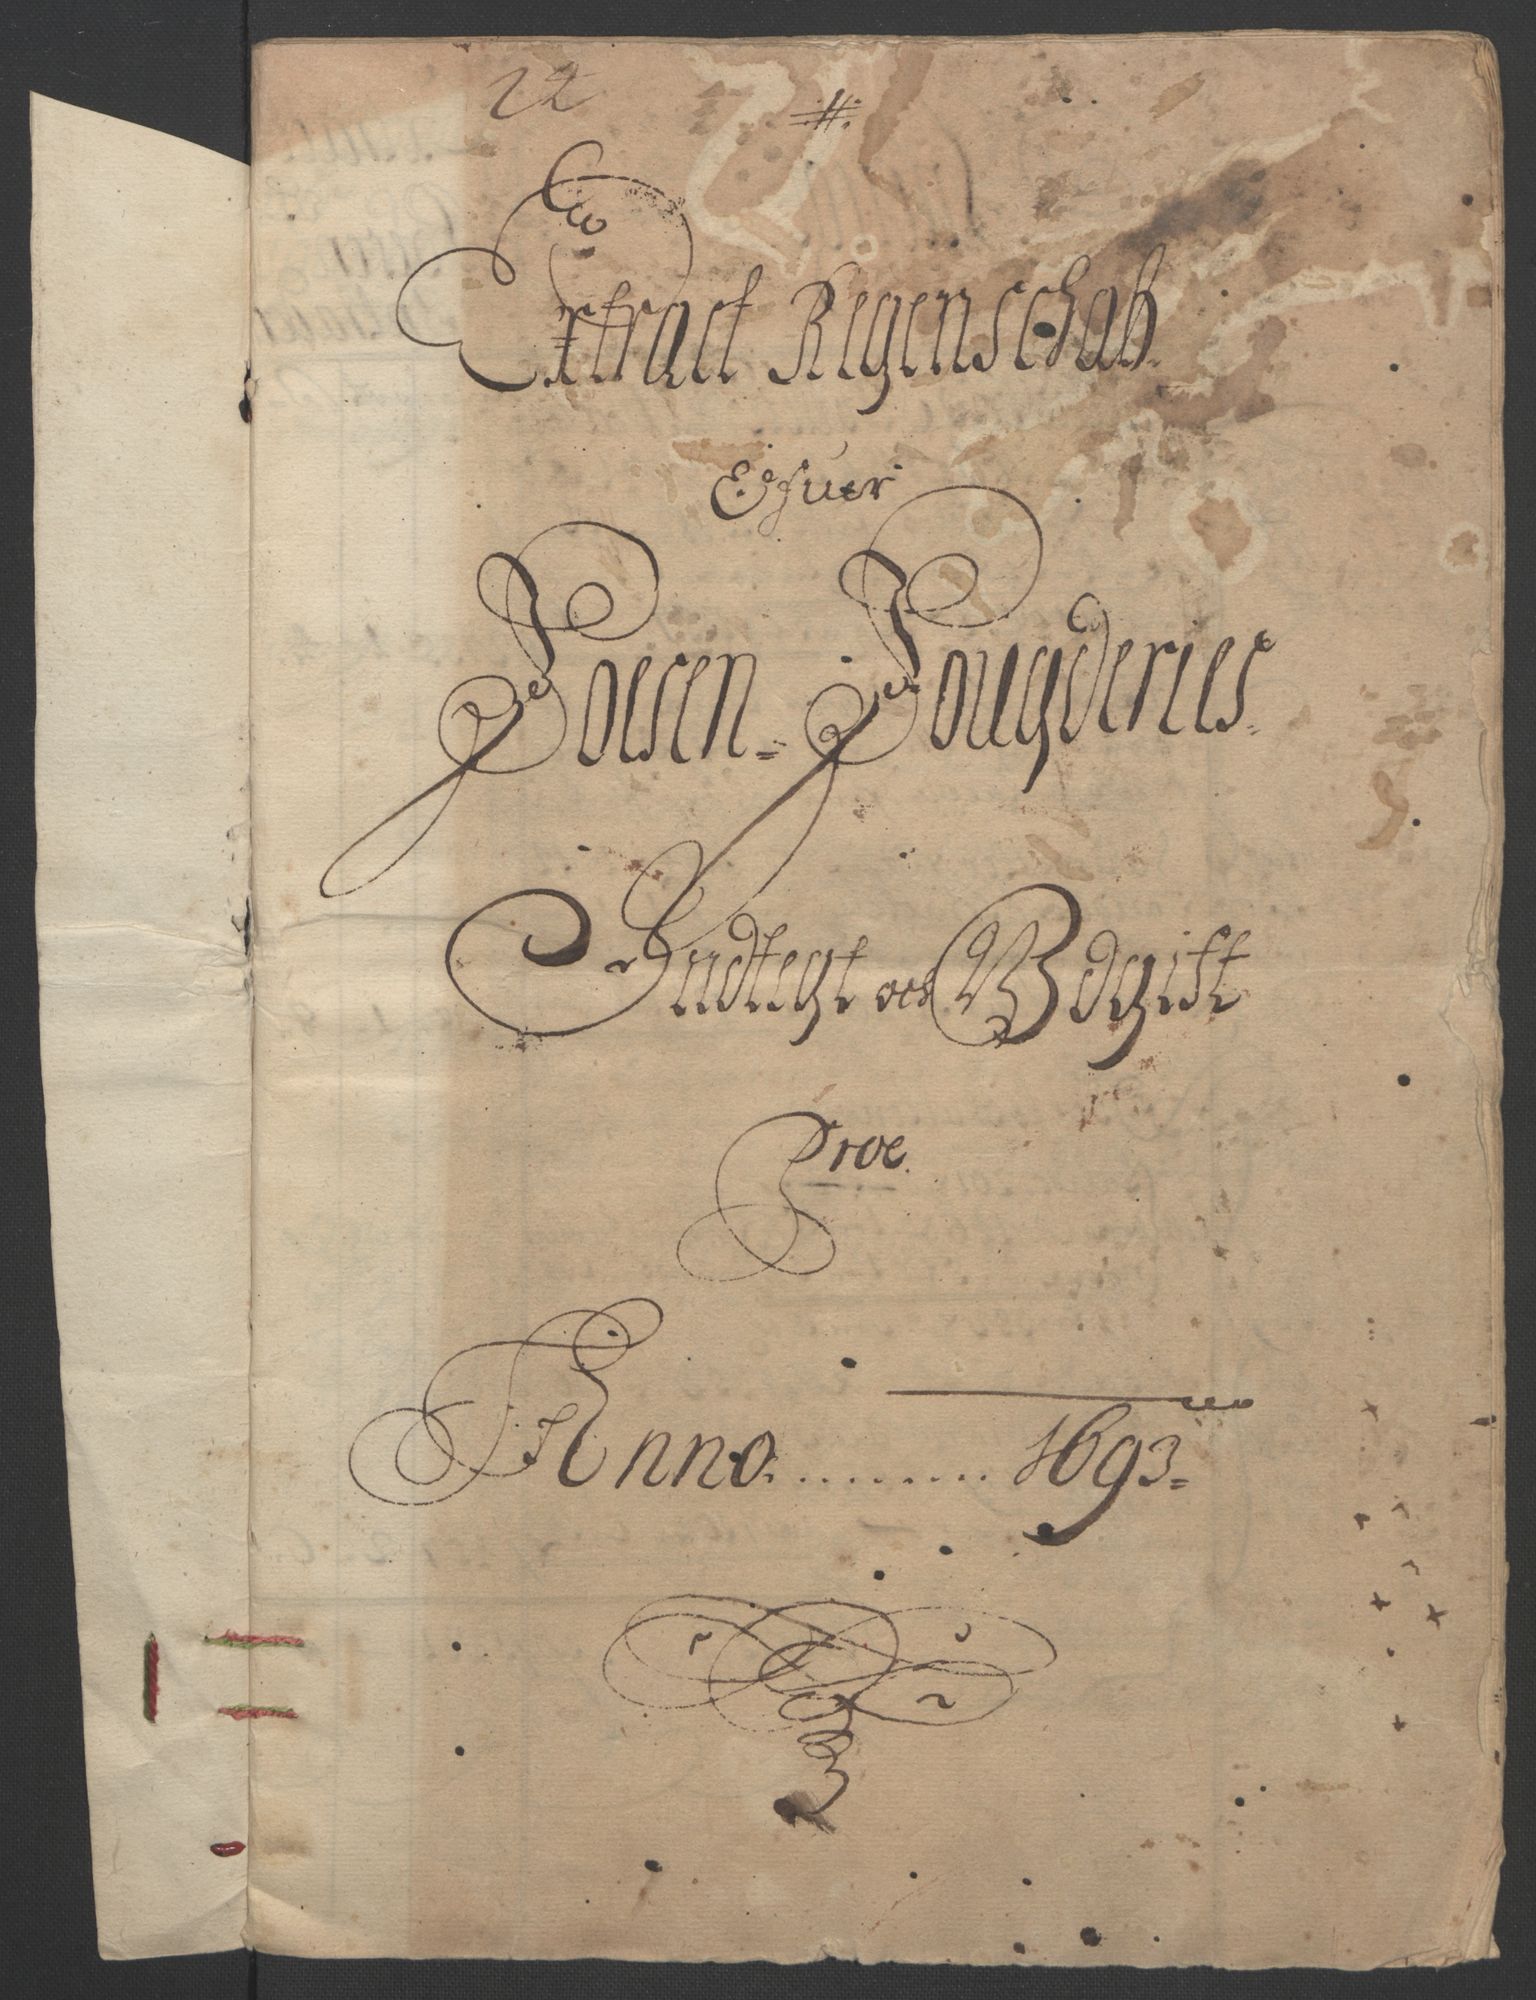 22
#
Extract Regenschab
Ofuer
Foesen Fougderies
Indtegt och Vdgift
Proe
Anno ......... 1693